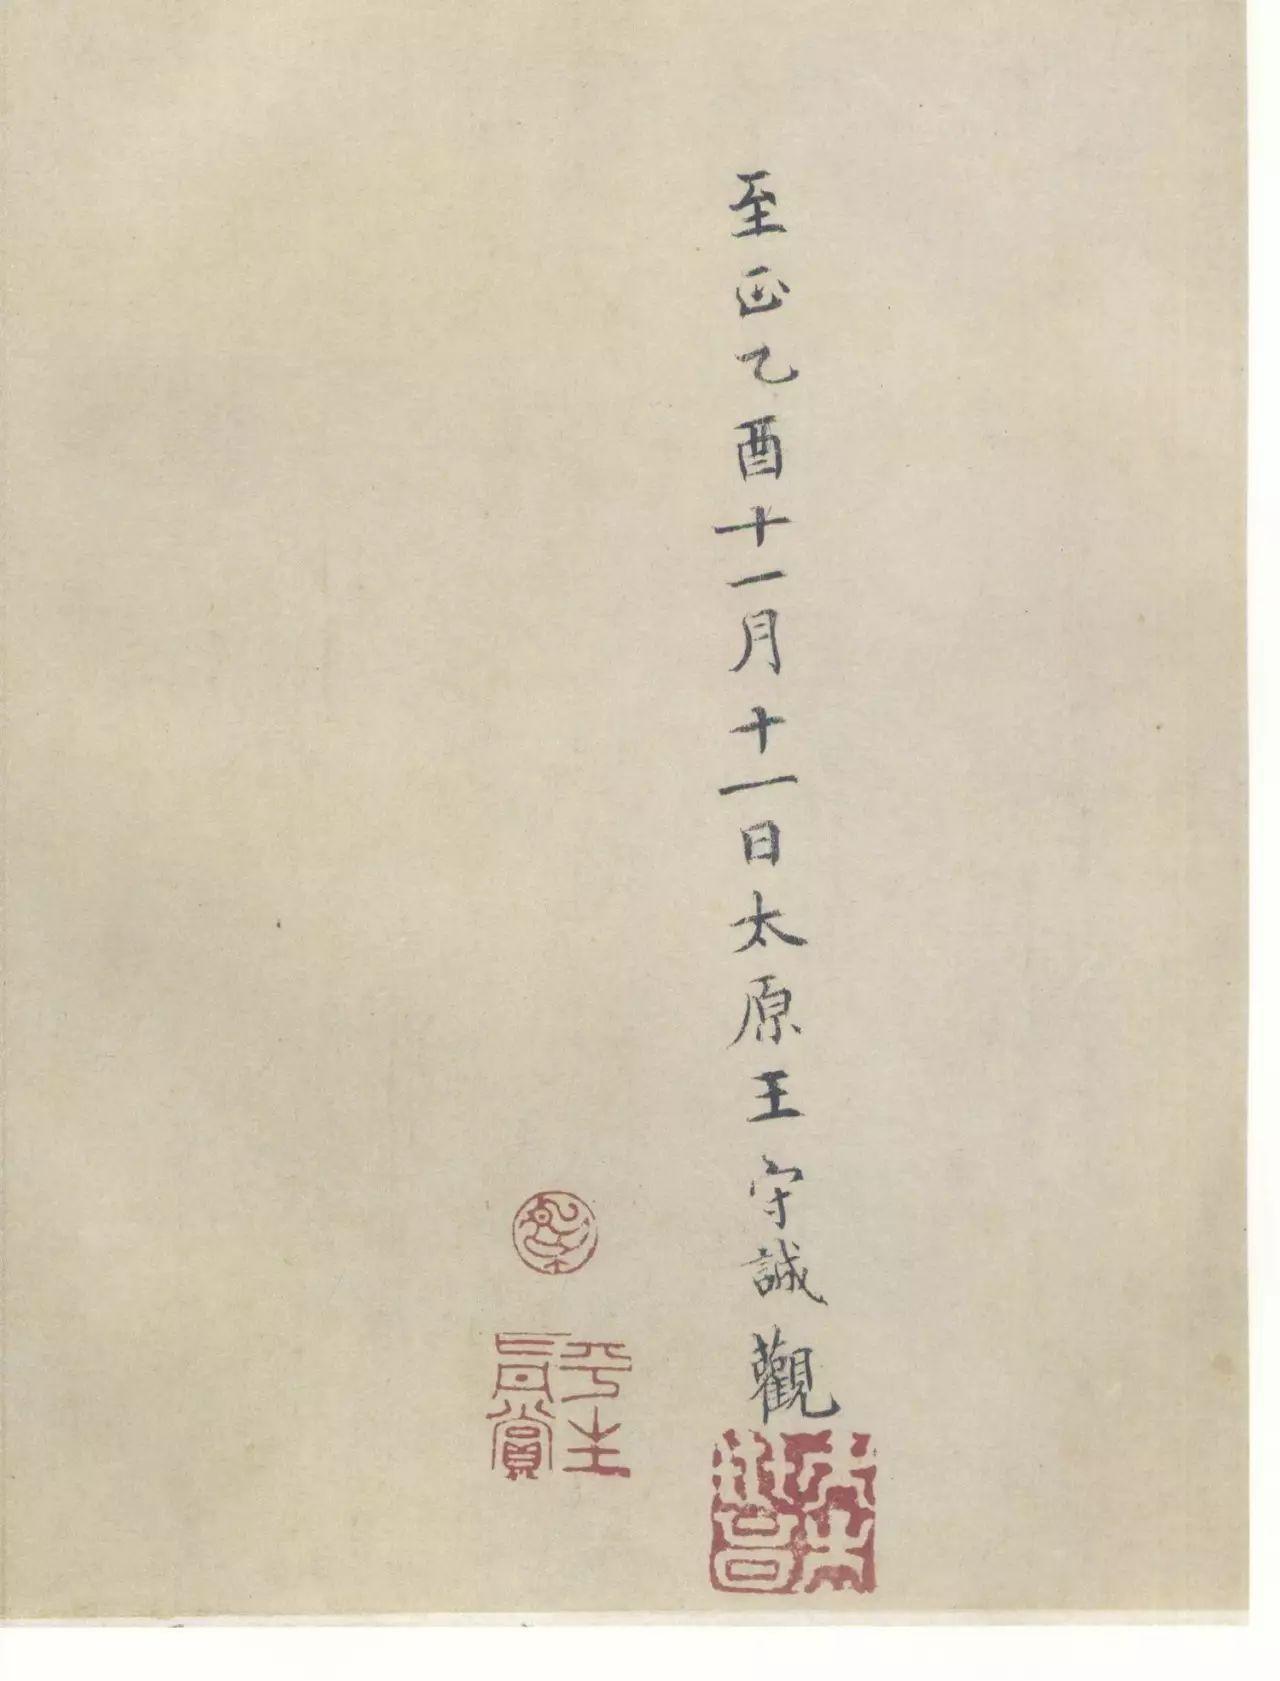 至正乙酉十一月十一日太原王守誠觀
平生
真賞